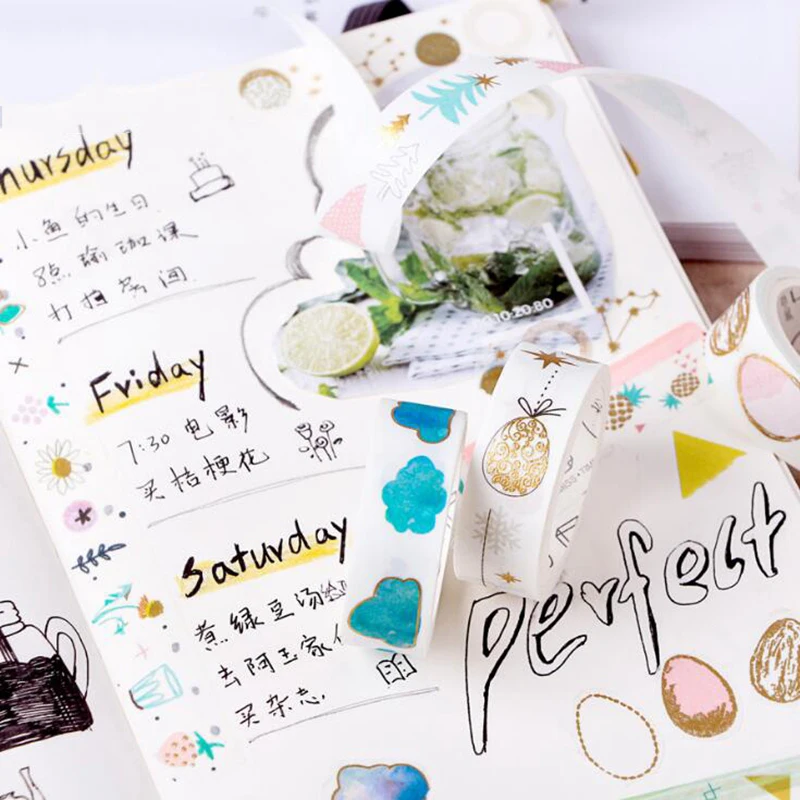 hursday
小鱼的生日
8点瑜珈课
打扫房间
Friday
7:30 电影
买桔梗花
Saturday
煮绿豆汤给
去阿玉家
买杂志
10:20:80
perfect